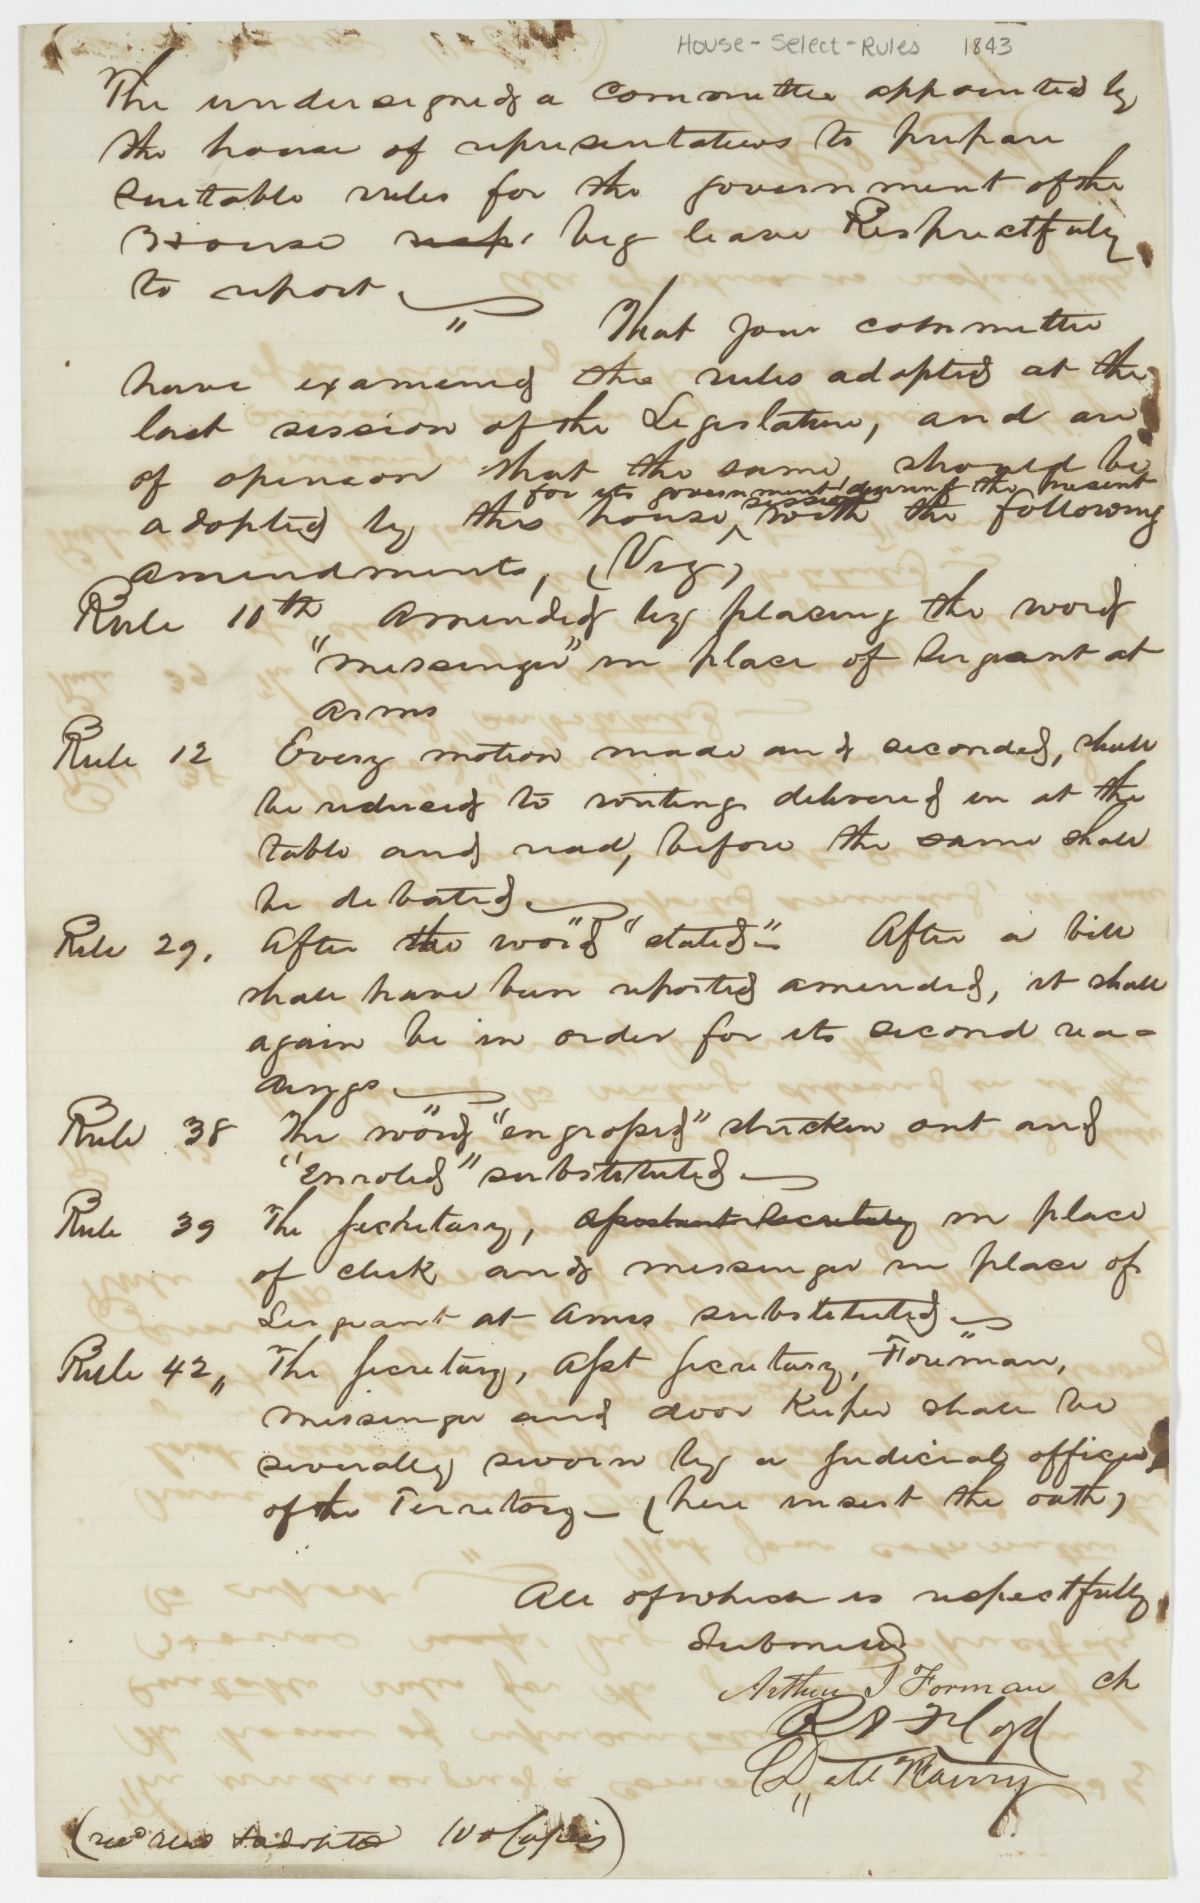 House - Select - Rules 1843
The undersigned a committee appointed by
the house of representatives to prepare
suitable rules for the government of the
House beg leave Respectfuly
to report.
That your committee
have examened the rules adopted at the
last session of the Legislature, and are
of openion that the same, should be
for its government during the present
session
adopted by this house, with the following
amendments, (Viz)
Rule 10th amended by placing the word
"messenger" in place of Sergeant at
arms
Rule 12 Every motion made and seconded, shall
be reduced to writing delivered in at the
table and read, before the same shall
be debated.
Rule 29. After the word "stated" After a bill
shall have been reported amended, it shall
again be in order for its second rea-
dings
Rule 38 The word "engrossed" stricken out and
"Enroled" substituted
Rule 39 The Secretary, assistant Secretary in place
of clerk and messenger in place of
Sergeant at arms substituted
Rule 42, The Secretary, Asst Secretary, Foreman,
messenger and door Keeper shall be
severally sworn by a Judicial officer
of the Territory - (here insert the oath)
All of which is respectfully
Submitted
Arthur J Forman ch
R S Floyd
(rec'd and adopted 100 Copies)